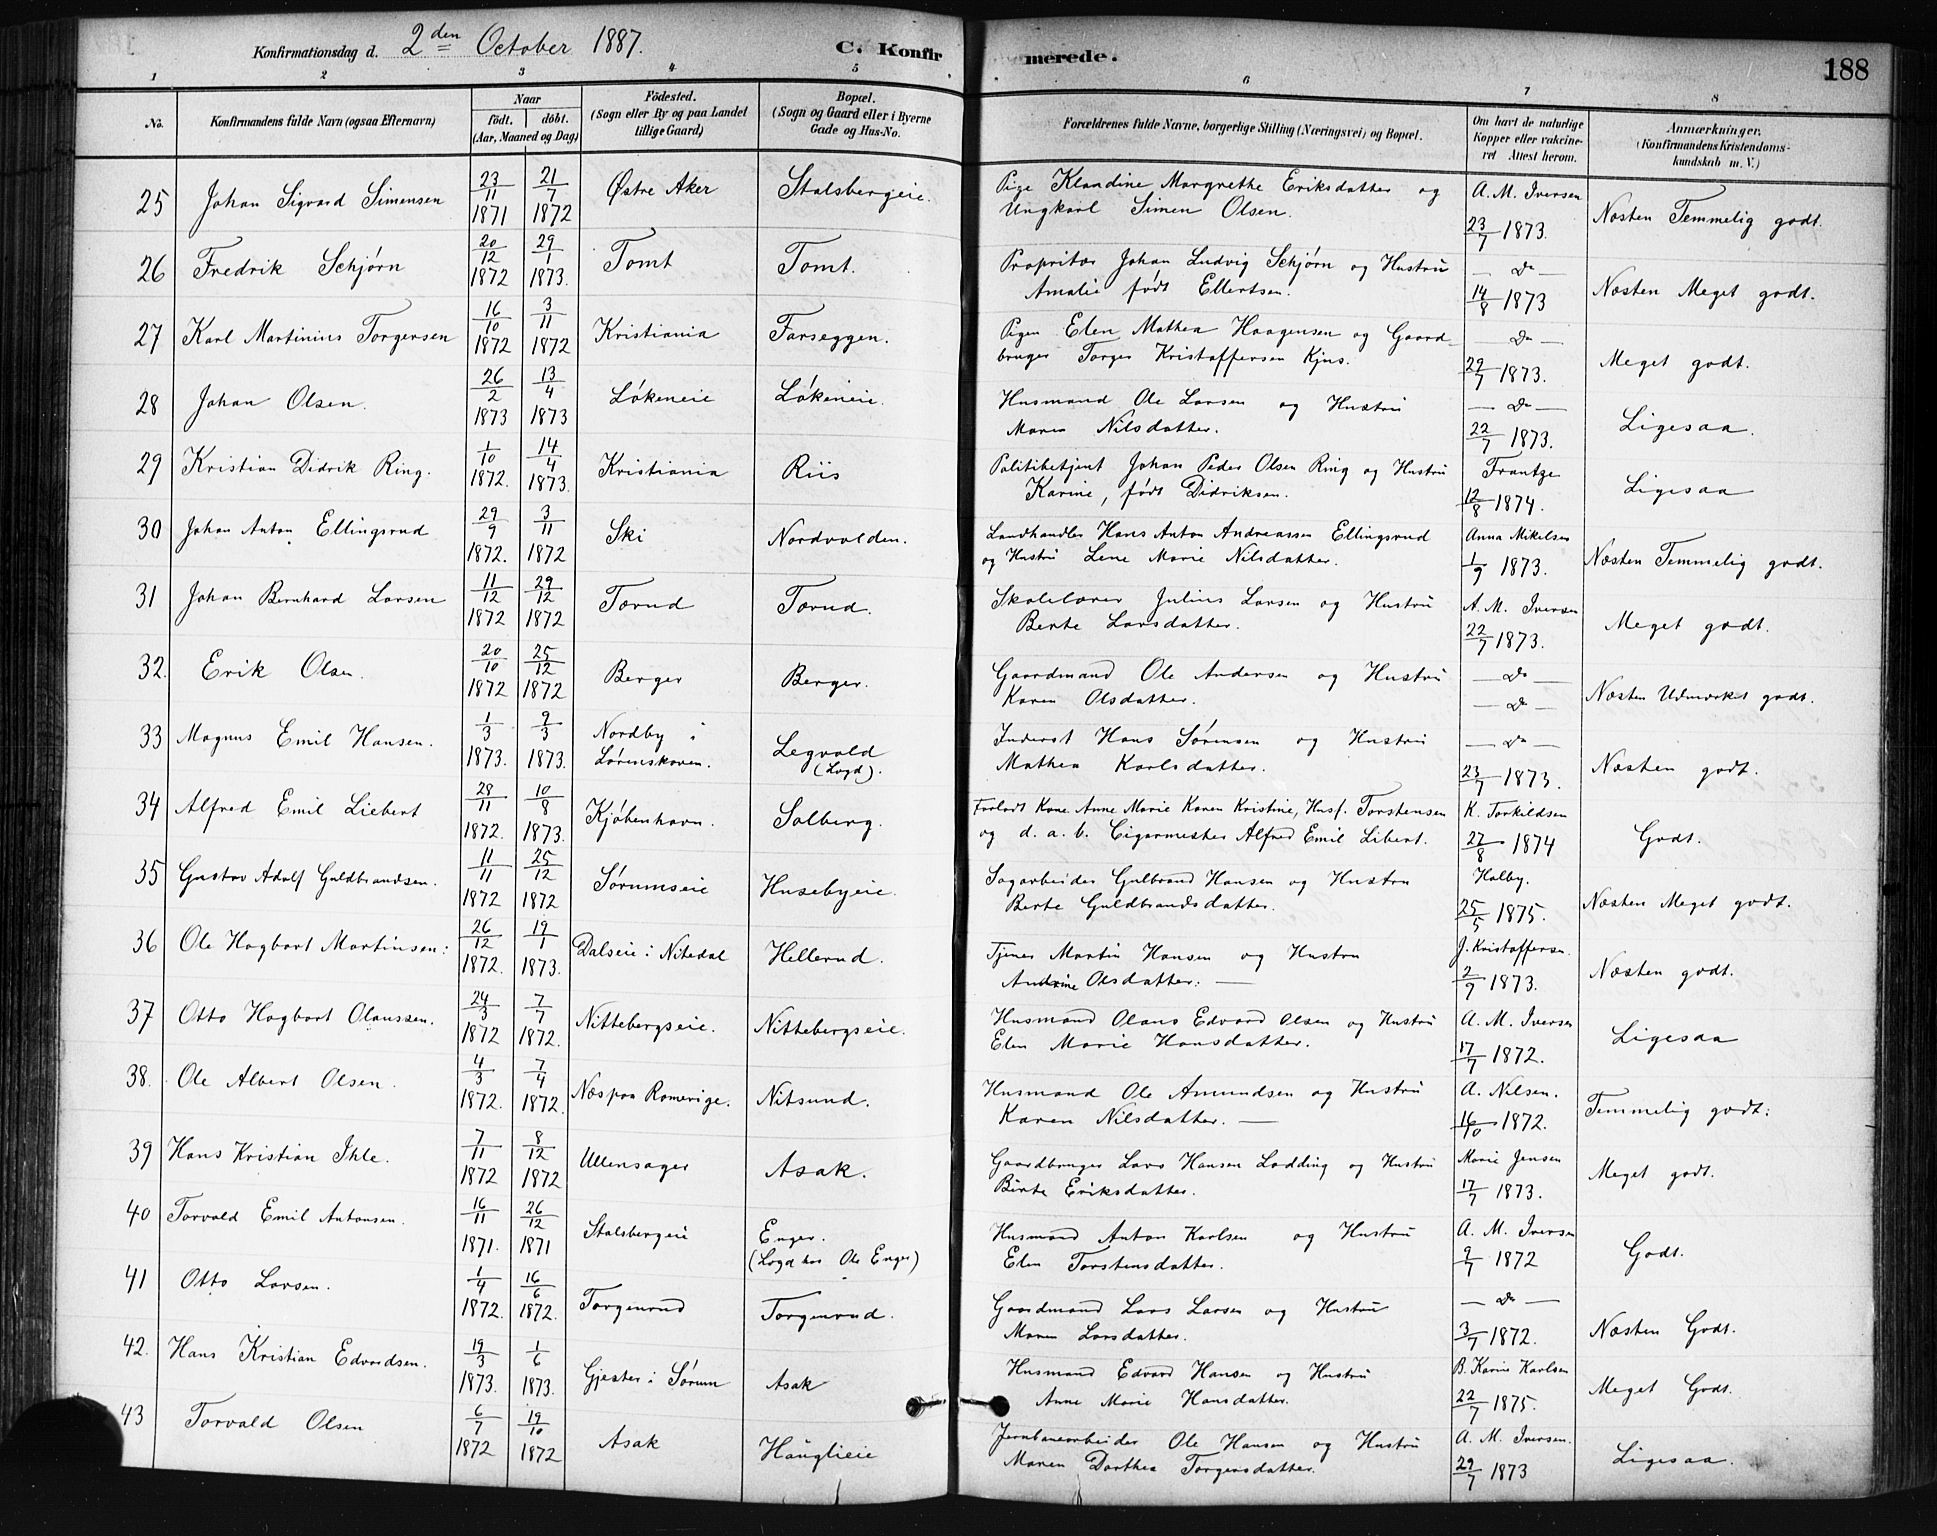 Konfirmationsdag d. 2den October 1887. C. Konfirmerede. 188
1 2 3 4 5 6 7 8
No. Konfirmandens fulde Navn (ogsaa Efternavn) Naar født. døbt. (Aar, Maaned og Dag) Fødested. (Sogn eller By og paa Landet tillige Gaard) Bopæl. (Sogn og Gaard eller i Byerne Gade og Hus-No. Forældrenes fulde Navne, borgerlige Stilling (Næringsvei) og Bopæl. Om havt de naturlige Kopper eller vakcineret Attest herom. Anmærkninger. (Konfirmandens Kristendomskundskab m. V.)
25 Johan Sigvard Simensen 23/11 1871 21/7 1872 Østre Aker Stalsbergeie. Pige Klaudine Margrethe Eriksdatter og Ungkarl Simen Olsen. A. M. Iversen 23/7 1873. Næsten Temmelig godt.
26 Fredrik Schjørn 20/12 1872 29/1 1873. Tomt Tomt. Propritær Johan Ludvig Schjørn og Hustru Amalie født Ellertsen. — Do — 14/8 1873 Næsten Meget godt.
27 Karl Martinius Torgersen 16/10 1872 3/11 1872 Kristiania Farseggen. Pigen Elen Mathea Haagensen og Gaardbruger Torger Kristoffersen Kjus. — Do — 29/7 1873. Meget godt.
28 Johan Olsen. 26/2 1873 13/4 1873 Løkeneie Løkeneie. Husmand Ole Larsen og Hustru Maren Nilsdatter. — Do — 22/7 1873. Ligesaa.
29 Kristian Didrik Ring. 1/10 1872. 14/4 1873. Kristiania Riis Politibetjent Johan Peder Olsen Ring og Hustru Karine, født Didriksen. Frantze 12/8 1874. Ligesaa
30 Johan Anton Ellingsrud 29/9 1872. 3/11 1872 Ski Nordvolden. Landhandler Hans Anton Andreassen Ellingsrud og Hustru Lene Marie Nilsdatter. Anna Mikelsen 1/9 1873. Næsten Temmelig godt.
31 Johan Bernhard Larsen 11/12 1872 29/12 1872 Tærud Tærud. Skolelærer Julius Larsen og Hustru Berte Larsdatter. A. M. Iversen 22/7 1873. Meget godt.
32. Erik Olsen. 20/10 1872 25/12 1872 Berger Berger. Gaardmand Ole Andersen og Hustru Karen Olsdatter. — Do — — Do — Næsten Udmærket godt.
33 Magnus Emil Hansen. 1/3 1873. 9/3 1873. Nordby i Lørenskoven. Legvold (Logd). Inderst Hans Sørensen og Hustru Mathea Karlsdatter. — Do — 23/7 1873. Næsten godt.
34 Alfred Emil Liebert 28/11 1872. 10/8 1873. Kjøbenhavn. Solberg. Forladt Kone Anne Marie Karen Kristine, Husf. Torstensen og d. a. b. Cigarmester Alfred Emil Libert. K. Torkildsen 27/8 1874 Godt.
35 Gustav Adolf Guldbrandsen. 11/11 1872 25/12 1872 Sørumseie Husebyeie. Sagarbeider Gulbrand Hansen og Hustru Berte Guldbrandsdatter. Holby. 25/5 1875. Næsten Meget godt.
36 Ole Hagbart Martinsen: 26/12 1872. 19/1 1873. Dalseie i Nitedal Hellerud. Tjener Martin Hansen og Hustru Andrine Olsdatter. — J. Kristoffersen. 2/9 1873. Næsten godt.
37 Otto Hagbart Olaussen. 24/3 1872 7/7 1872. Nittebergseie. Nittebergseie. Husmand Olaus Edvard Olsen og Hustru Elen Marie Hansdatter. A. M. Iversen 17/7 1872. Ligesaa
38. Ole Albert Olsen. 4/3 1872. 7/4 1872. Næs paa Romerige. Nitsund. Husmand Ole Amundsen og Hustru Karen Nilsdatter. — A. Nilsen. 16/10 1872. Temmelig godt.
39 Hans Kristian Ihle. 7/11 1872 8/12 1872 Ullensager Asak. Gaardbruger Lars Hansen Lodding og Hustru Birte Eriksdatter. Marie Jensen 17/7 1873. Meget godt.
40 Torvald Emil Antonsen. 16/11 1871. 26/12 1871 Stalsbergeie Enger. (Logd hos Ole Enger) Husmand Anton Karlsen og Hustru Elen Torstensdatter. A. M. Iversen 9/7 1872 Godt.
41 Otto Larsen. 1/4 1872. 16/6 1872. Torgenrud Torgenrud. Gaardmand Lars Larsen og Hustru Maren Larsdatter. — Do — 3/7 1872. Næsten Godt.
42. Hans Kristian Edvardsen. 19/3 1873. 1/6 1873. Gjester i Sørum Asak Husmand Edvard Hansen og Hustru Anne Marie Hansdatter. B. Karine Karlsen 22/7 1875. Meget Godt.
43 Torvald Olsen 6/7 1872 19/10 1872 Asak Hauglieie Jernbanearbeider Ole Hansen og Hustru Maren Dorthea Torgersdatter. A. M. Iversen. 29/7 1873 Ligesaa.